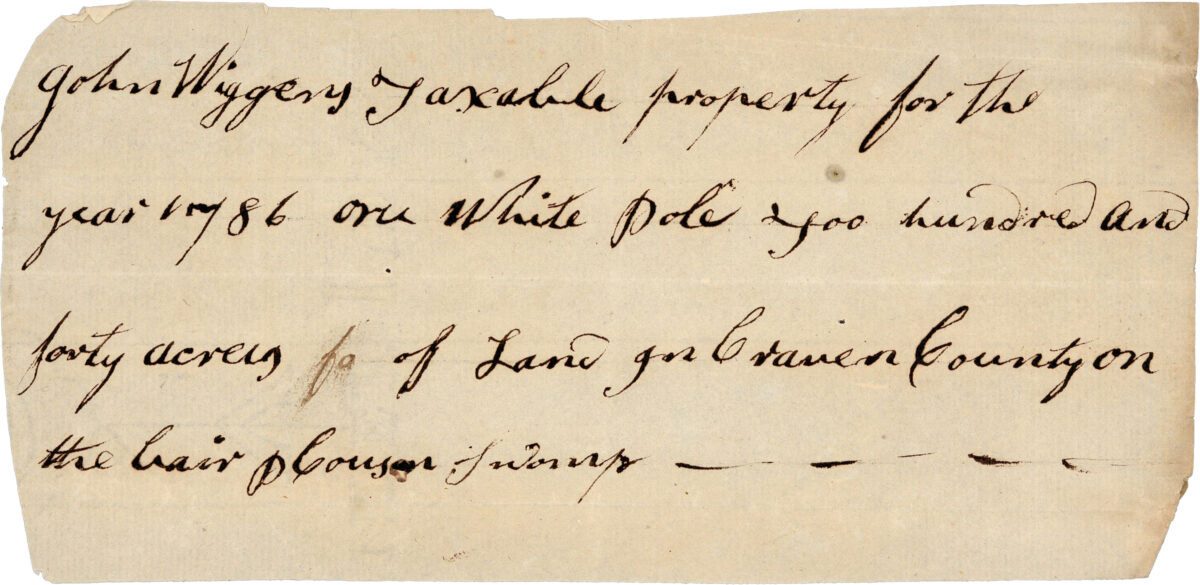 John Wiggens Taxable property for the
year 1786 one White pole Too hundred and
forty acres fo of Land In Craven County on
the bair pCouson Swomp